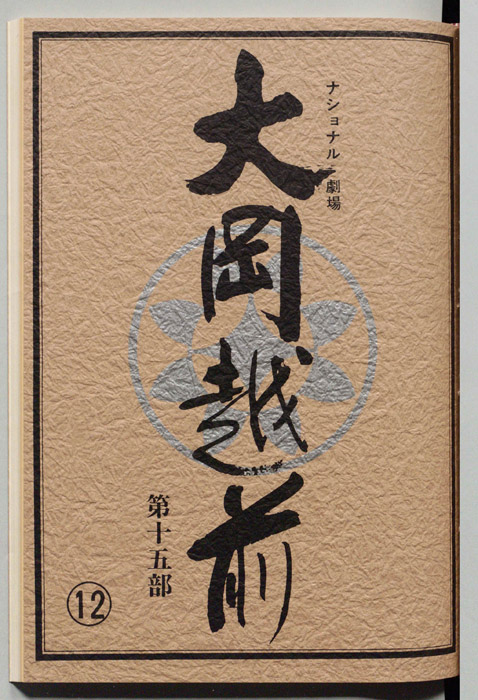 ナショナル劇場
大岡越前
第十五部
⑫